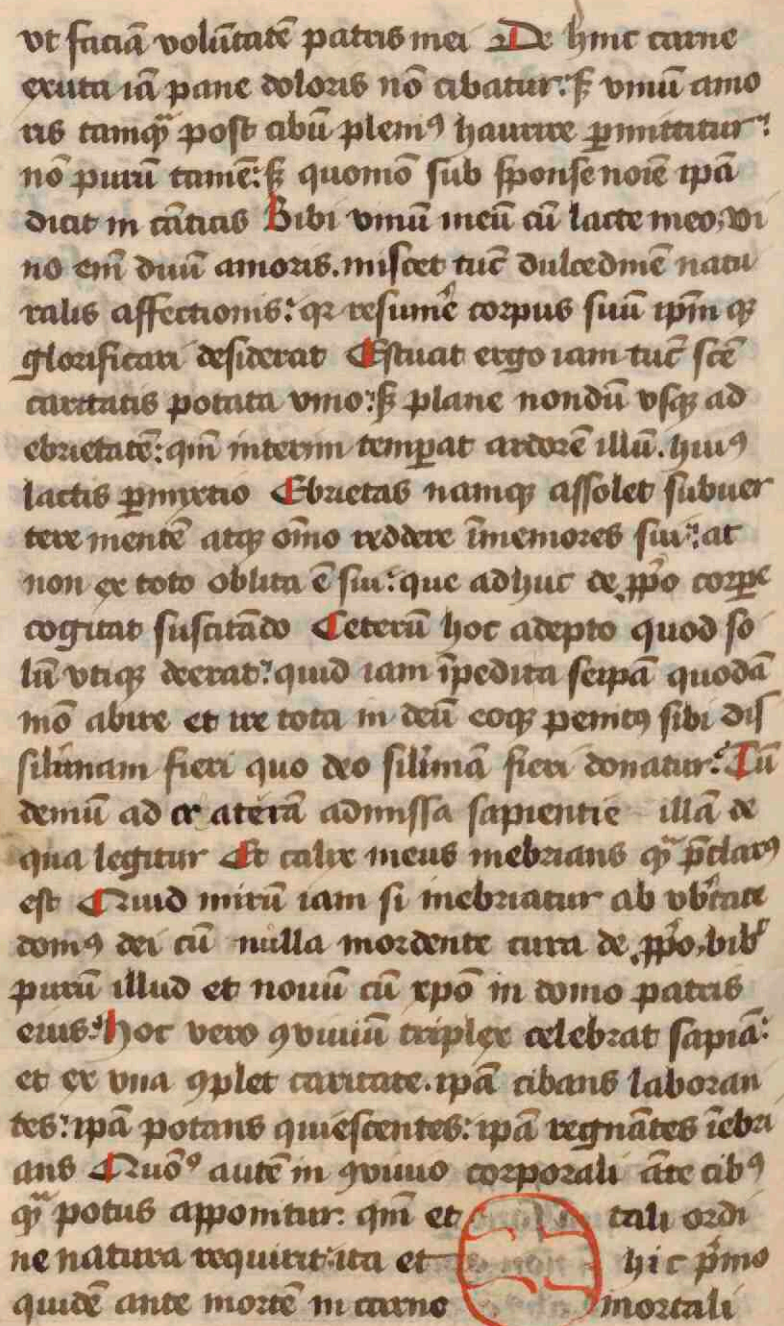 vt faciā volūtatē patris mei De hinc carne
exuta iā pane doloris nō cibatur: sꝫ vinū amo
ris tamqᷓ post cibū pleniꝰ haurire ꝑmittitur:
nō purū tamē: sꝫ quomō sub sponse noīe ipā
dicit in cāticis Bibi vinū meū cū lacte meo, vi
no em̄ diuī amoris. miscet tūc dulcedinē natu
ralis affectionis: qꝛ resumē corpus suū ipm̄ qꝫ
glorificari desiderat Estuat ergo iam tūc scē
caritatis potata vino: sꝫ plane nondū vsqꝫ ad
ebrietatē: qm̄ interim temꝑat ardorē illū. huiꝰ
lactis ꝑmixtio Ebrietas namqꝫ assolet subuer
tere mentē atqꝫ oīno reddere īmemores sui: at
non ex toto oblita ē sui: que adhuc de ꝓpͦo corꝑe
cogitat suscitādo Ceterū hoc adepto quod so
lū vtiqꝫ deerat: quid iam īpedita seipā quodā
mō abire et ire tota in deū eoqꝫ penitꝰ sibi dis
silīmam fieri quo deo silīmā fieri donatur: Tū
demū ad cr aterā admissa sapientie illā de
qua legitur Et calix meus inebrians qᷓ p̄clarꝰ
est Quid mirū iam si inebriatur ab vb̄tate
domꝰ dei cū nulla mordente cura de ꝓpͦo, bib̄
purū illud et nouū cū xpō in domo patris
eius: hoc vero ꝯuiuiū triplex celebrat sapiā:
et ex vna ꝯplet caritate. ipā cibans laboran
tes: ipā potans quiescentes: ipā regnātes īebri
ans Quōꝰ autē in ꝯuiuio corporali āte cibꝰ
qᷓ potus apponitur. qm̄ et tali ordi
ne natura requirit: ita et hic pͥmo
quidē ante mortē in carne mortali